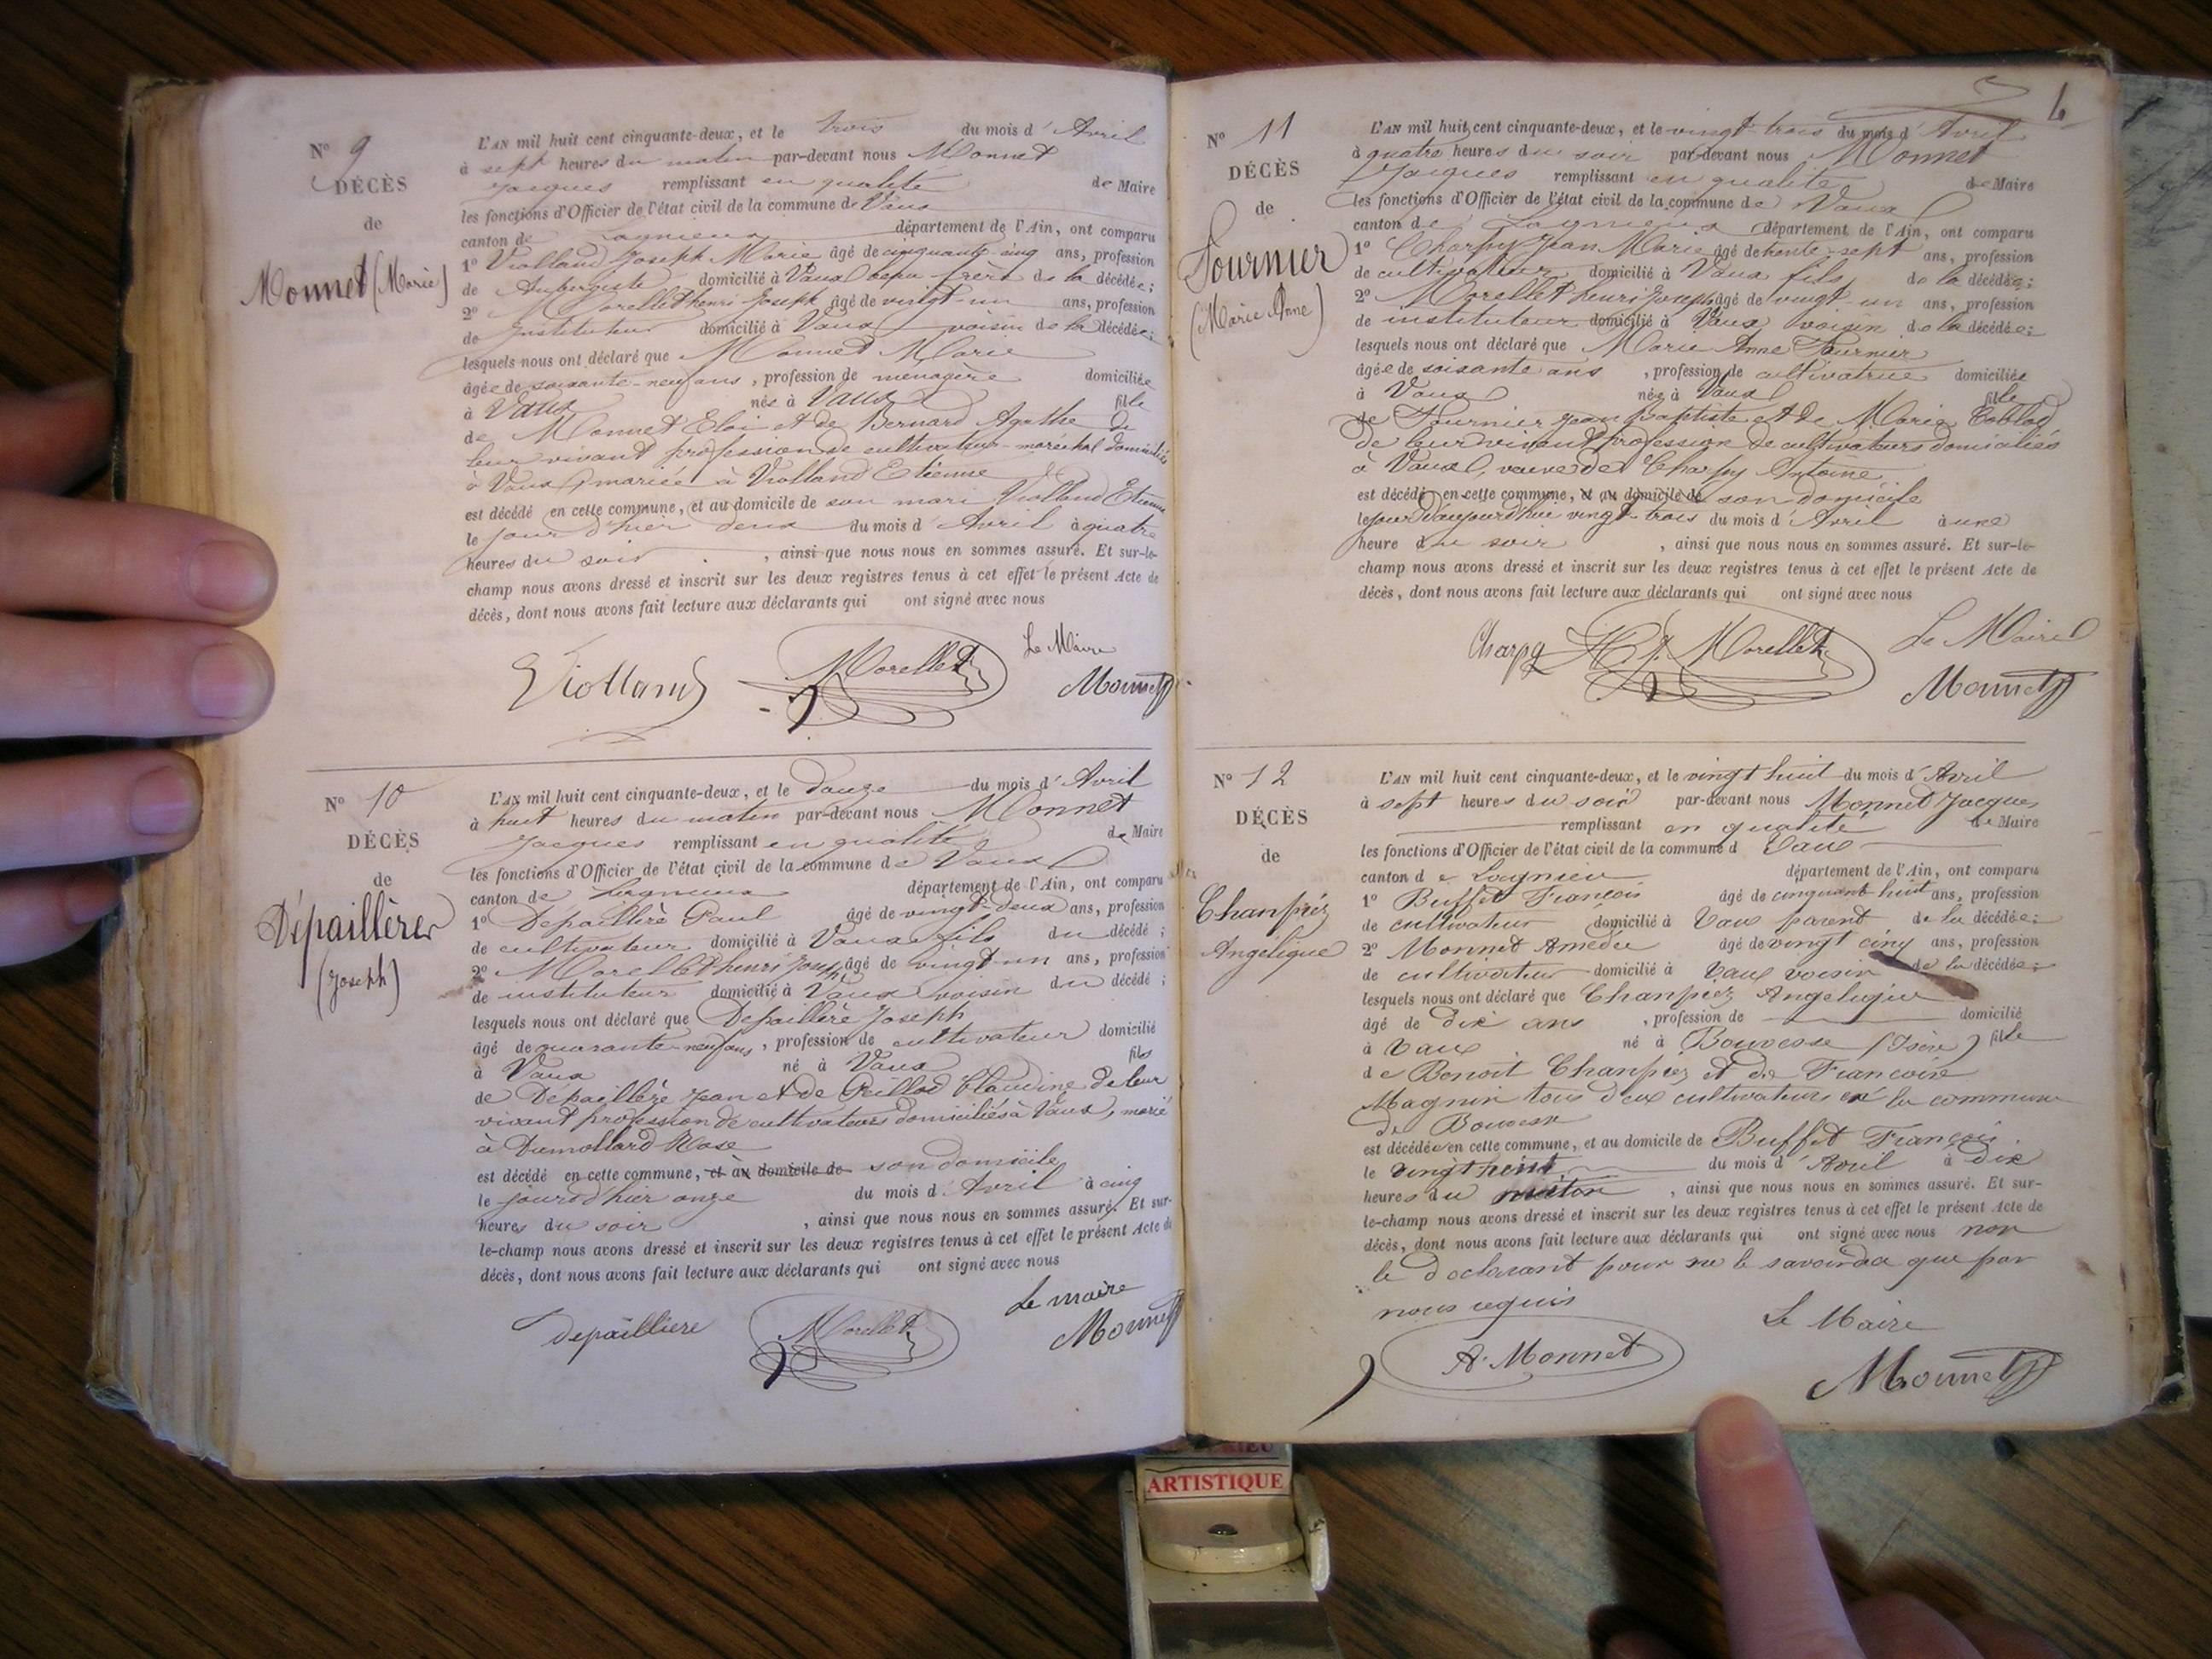 N° 9
DÉCÈS
de
Monnet (Marie)
L'AN mil huit cent cinquante-deux, et le trois du mois d'Avril
à sept heures du matin par-devant nous Monnet
Jacques remplissant en qualité de Maire
les fonctions d'Officier de l'état civil de la commune de Vaux
canton de Lagnieux département de l'Ain, ont comparu
1° Violland Joseph Marie âgé de cinquante-cinq ans, profession
de Aubergiste domicilié à Vaux beau-frère de la décédée;
2° Morellet henri Joseph âgé de vingt-un ans, profession
de Instituteur domicilié à Vaux voisin de la décédée;
lesquels nous ont déclaré que Monnet Marie
âgée de soixante-neuf ans, profession de ménagère domiciliée
à Vaux née à Vaux fille
de Monnet Eloi et de Bernard Agathe de
leur vivant profession de cultivateur-maréchal domiciliés
à Vaux, mariée à Violland Etienne
est décédé en cette commune, et au domicile de son mari Violland Etienne
le jour d'hier deux du mois d'Avril à quatre
heures du soir, ainsi que nous nous en sommes assuré. Et sur-le-
champ nous avons dressé et inscrit sur les deux registres tenus à cet effet le présent Acte de
décès, dont nous avons fait lecture aux déclarants qui ont signé avec nous
Le Maire
Violland Morellet Monnet
N° 10
DÉCÈS
de
Dépaillère
(Joseph)
L'AN mil huit cent cinquante-deux, et le douze du mois d'Avril
à huit heures du matin par-devant nous Monnet
Jacques remplissant en qualité de Maire
les fonctions d'Officier de l'état civil de la commune de Vaux
canton de Lagnieux département de l'Ain, ont comparu
1° Dépaillère Paul âgé de vingt-deux ans, profession
de cultivateur domicilié à Vaux fils du décédé;
2° Morellet henri Joseph âgé de vingt-un ans, profession
de instituteur domicilié à Vaux voisin du décédé;
lesquels nous ont déclaré que Depaillère Joseph
âgé de quarante-neuf ans, profession de cultivateur domicilié
à Vaux né à Vaux fils
de Dépaillère Jean et de Claudine de leur
vivant profession de cultivateurs domiciliés à Vaux, marié
à Dumollard Rose
est décédé en cette commune, et au domicile de son domicile
le jour d'hier onze du mois d'Avril à cinq
heures du soir, ainsi que nous nous en sommes assuré. Et sur-
le-champ nous avons dressé et inscrit sur les deux registres tenus à cet effet le présent Acte de
décès, dont nous avons fait lecture aux déclarants qui ont signé avec nous
Le maire
depaillière Morellet Monnet
6
N° 11
DÉCÈS
de
Fournier
(Marie Anne)
L'AN mil huit cent cinquante-deux, et le vingt-trois du mois d'Avril
à quatre heures du soir par-devant nous Monnet
Jacques remplissant en qualité de Maire
les fonctions d'Officier de l'état civil de la commune de Vaux
canton de Lagnieux département de l'Ain, ont comparu
1° Charpy Jean Marie âgé de trente-sept ans, profession
de cultivateur domicilié à Vaux fils de la décédée;
2° Morellet henri Joseph âgé de vingt-un ans, profession
de instituteur domicilié à Vaux voisin de la décédée;
lesquels nous ont déclaré que Marie Anne Fournier
âgée de soixante ans, profession de cultivatrice domiciliée
à Vaux née à Vaux fille
de Fournier Jean Baptiste et de Marie
de leur vivant profession de cultivateurs domiciliés
à Vaux, veuve de Charpy Antoine
est décédé en cette commune, et au domicile de son domicile
le jour d'aujourd'hui vingt-trois du mois d'Avril à une
heure du soir, ainsi que nous nous en sommes assuré. Et sur-le-
champ nous avons dressé et inscrit sur les deux registres tenus à cet effet le présent Acte de
décès, dont nous avons fait lecture aux déclarants qui ont signé avec nous
Charpy H. J. Morellet Le Maire
Monnet
N° 12
DÉCÈS
de
Chanpiéz
Angélique
L'AN mil huit cent cinquante-deux, et le vingt huit du mois d'Avril
à sept heures du soir par-devant nous Monnet Jacques
remplissant en qualité de Maire
les fonctions d'Officier de l'état civil de la commune d Vaux
canton de Lagnieu département de l'Ain, ont comparu
1° Buffet François âgé de cinquante huit ans, profession
de cultivateur domicilié à Vaux parent de la décédée;
2° Monnet Amédée âgé de vingt cinq ans, profession
de cultivateur domicilié à Vaux voisin de la décédée;
lesquels nous ont déclaré que Chanpiez Angelique
âgé de dix ans, profession de domicilié
à Vaux né à Bouvesse (Isère) fille
de Benoit Chanpiez et de Francoise
Magnin tous deux cultivateurs en la commune
de Bouvesse
est décédée en cette commune, et au domicile de Buffet François
le vingt huit du mois d'Avril à dix
heures du matin, ainsi que nous nous en sommes assuré. Et sur-
le-champ nous avons dressé et inscrit sur les deux registres tenus à cet effet le présent Acte de
décès, dont nous avons fait lecture aux déclarants qui ont signé avec nous non
le declarant pour ne le savoir de que par
nous requis
Le Maire
A. Monnet Monnet
ARTISTIQUE